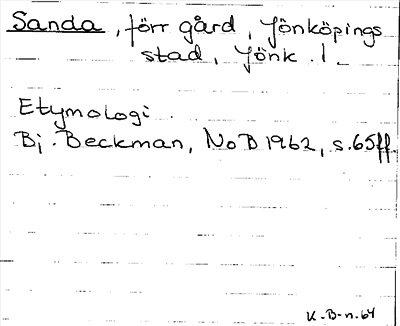 Sanda, förr gård, Jönköpings
stad, Jönk. l.
Etymologi.
Bj. Beckman, NoB 1962, s. 65 ff.
K-B-n. 64